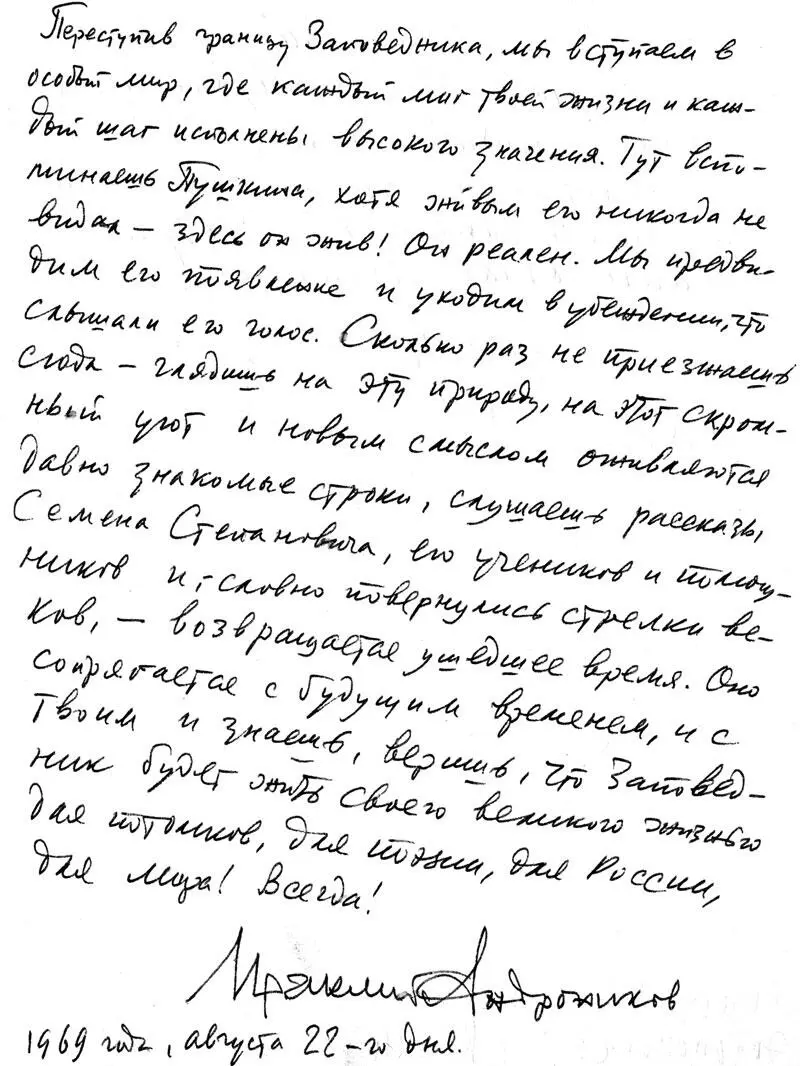 Переступив границу Заповедника, мы вступаем в
особый мир, где каждый миг твоей жизни и каж-
дый шаг исполнены высокого значения. Тут вспо-
минаешь Пушкина, хотя живым его никогда не
видал – здесь он жив! Он реален. Мы предви-
дим его появление и уходим в убеждении, что
слышали его голос. Сколько раз не приезжаешь
сюда – глядишь на эту природу, на этот скром-
ный уют и новым смыслом оживляются
давно знакомые строки, слушаешь рассказы
Семена Степановича, его учеников и помощ-
ников и, словно повернулись стрелки ве-
ков, – возвращается ушедшее время. Оно
сопрягается с будущим временем, и с
твоим и знаешь, веришь, что Заповед-
ник будет жить своего великого жизнью
для потомков, для поэзии, для России,
для мира! Всегда!
Ираклий Андроников
1969 год, августа 22-го дня.